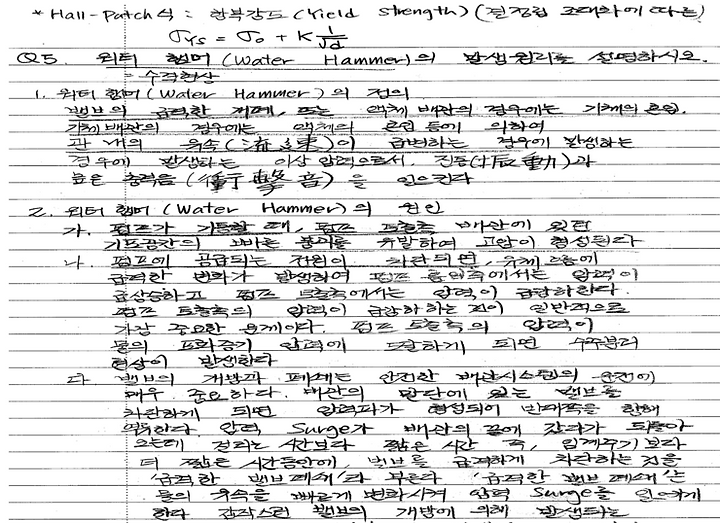 * Hall-Patch 식 : 항복강도 (Yield Strength) (결정립 조대화에 따른)
σYS = σ0 + K 1/√d
Q5. 워터 햄머 (Water Hammer)의 발생원리를 설명하시오.
= 수격현상
1. 워터 햄머 (Water Hammer)의 정의
밸브의 급격한 개폐, 또는 액체 배관의 경우에는 기체의 혼입.
기체 배관의 경우에는 액체의 혼입 등에 의하여
관 내의 유속(流速)이 급변하는 경우에 발생하는
경우에 발생하는 이상 압력으로서, 진동(振動)과
높은 충격음(衝擊音)을 일으킨다
2. 워터 햄머 (Water Hammer)의 원인
가. 펌프가 기동할 때, 펌프 토출측 배관에 있던
기포공간의 빠른 붕괴를 유발하여 고압이 형성된다
나. 펌프에 공급되는 전원이 차단되면, 유체 흐름에
급격한 변화가 발생하여 펌프 흡입측에서는 압력이
급상승하고 펌프 토출측에서는 압력이 급강하한다.
펌프 토출측의 압력이 급강하하는 것이 일반적으로
가장 중요한 문제이다. 펌프 토출측의 압력이
물의 포화증기 압력에 도달하게 되면 수주분리
현상이 발생한다
다. 밸브의 개방과 폐쇄는 안전한 배관시스템의 운전에
매우 중요하다. 배관의 말단에 있는 밸브를
차단하게 되면 압력파가 형성되어 반대쪽을 향해
역류한다. 압력 Surge가 배관의 끝에 갔다가 되돌아
오는데 걸리는 시간보다 짧은 시간 즉, 임계주기보다
더 짧은 시간동안에, 밸브를 급격하게 차단하는 것을
'급격한 밸브폐쇄'라 부른다 '급격한 밸브폐쇄'는
물의 유속을 빠르게 변화시켜 압력 Surge를 일으키게
한다 갑작스런 밸브의 개방에 의해 발생되는